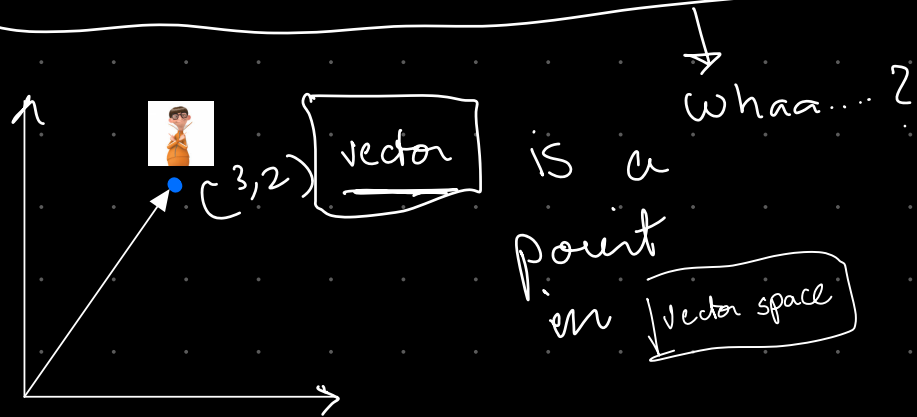 whaa....?
(3,2) vector is a
point
in vector space